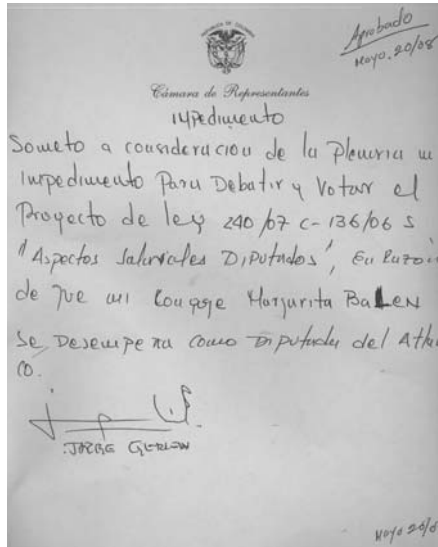 Aprobado
Mayo. 20/08
Cámara de Representantes
Impedimento
Someto a consideración de la Plenaria mi
Impedimento Para Debatir y Votar el
Proyecto de ley 240/07 C-136/06 S
"Aspectos Salariales Diputados", En Razón
de que mi Conyuge Margarita Balen
Se Desempeña como Diputada del Atlan
co.
JORGE
Mayo 20/0